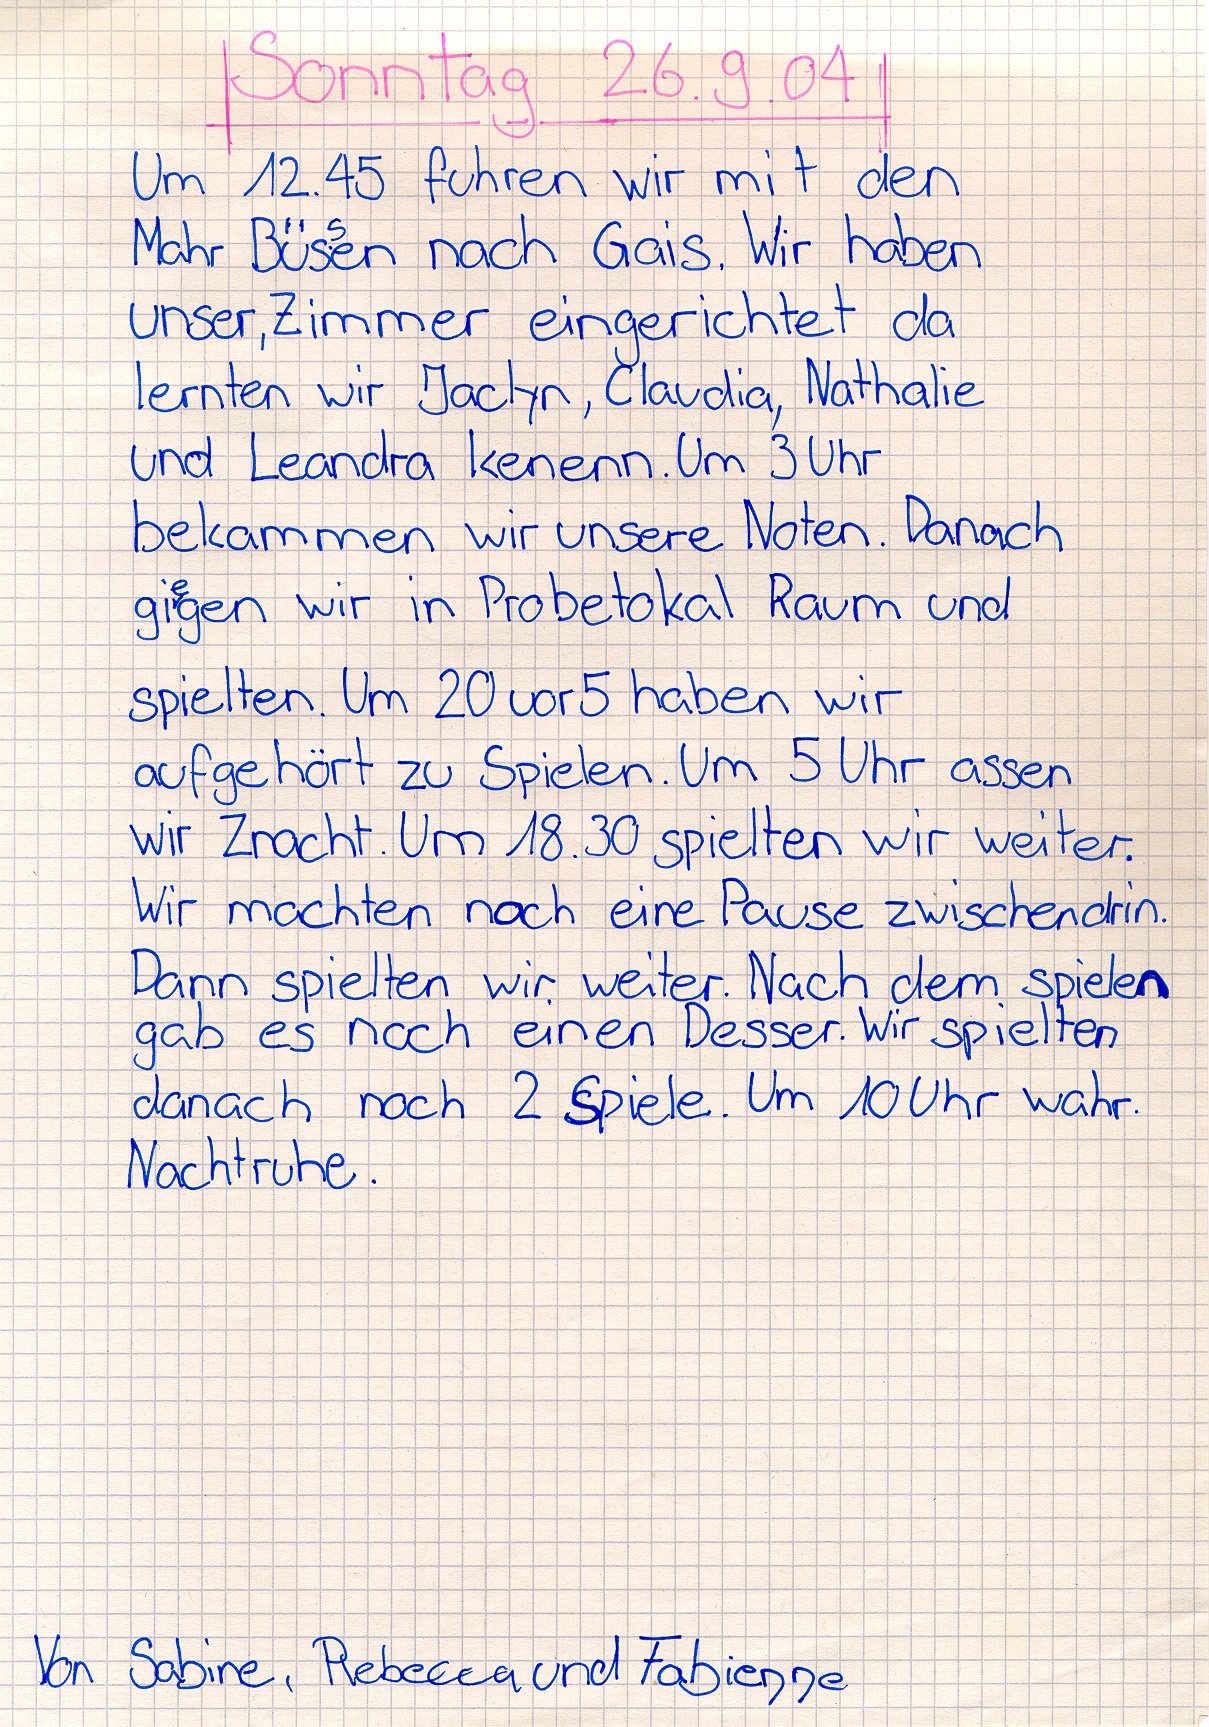 Sonntag 26.9.04
Um 12.45 fuhren wir mit den
Mahr Büssen nach Gais. Wir haben
unser, Zimmer eingerichtet da
lernten wir Jaclyn, Claudia, Nathalie
und Leandra kenenn. Um 3 Uhr
bekammen wir unsere Noten. Danach
giegen wir in Probetokal Raum und
spielten. Um 20 vor 5 haben wir
aufgehört zu Spielen. Um 5 Uhr assen
wir Znacht. Um 18.30 spielten wir weiter.
Wir machten noch eine Pause zwischendrin.
Dann spielten wir weiter. Nach dem spielen
gab es noch einen Desser. Wir spielten
danach noch 2 Spiele. Um 10 Uhr wahr.
Nachtruhe.
Von Sabine, Rebecca und Fabienne